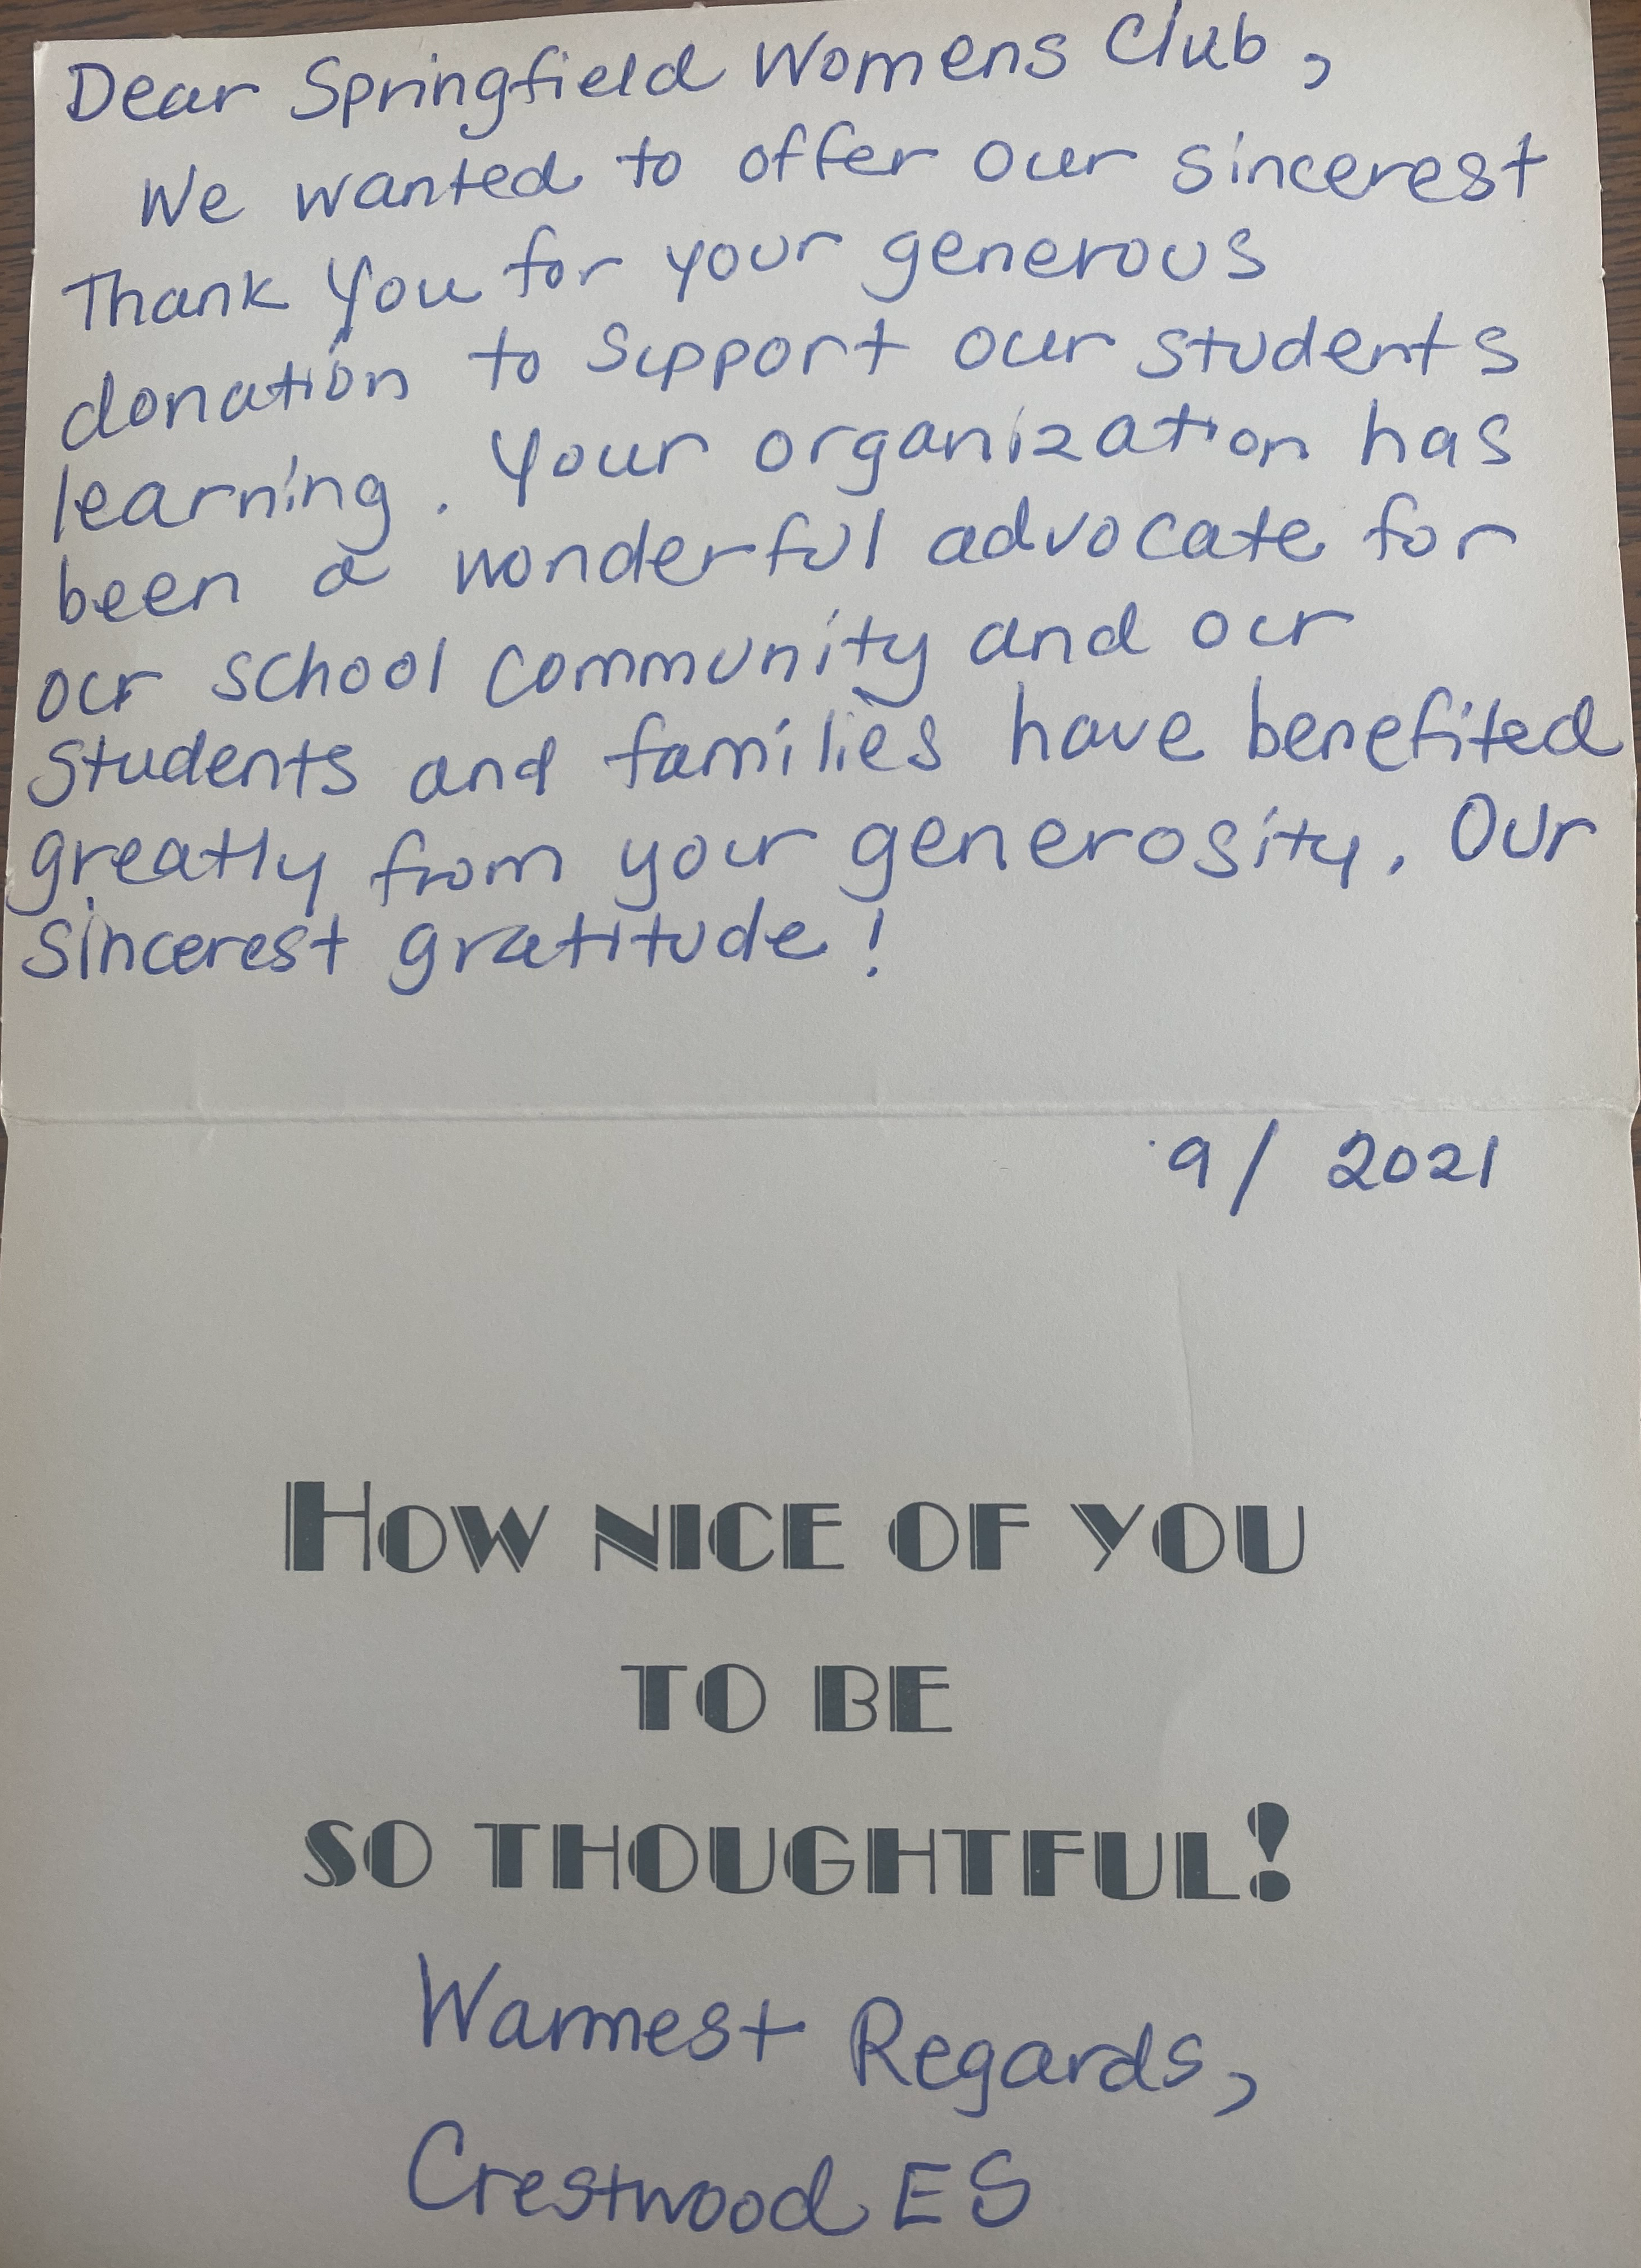 Dear Springfield Womens Club,
We wanted to offer our sincerest
Thank You for your generous
donation to support our students
learning. Your organization has
been a wonderful advocate for
our school community and our
students and families have benefited
greatly from your generosity. Our
sincerest gratitude!
9/ 2021
HOW NICE OF YOU
TO BE
SO THOUGHTFUL!
Warmest Regards,
Crestwood ES